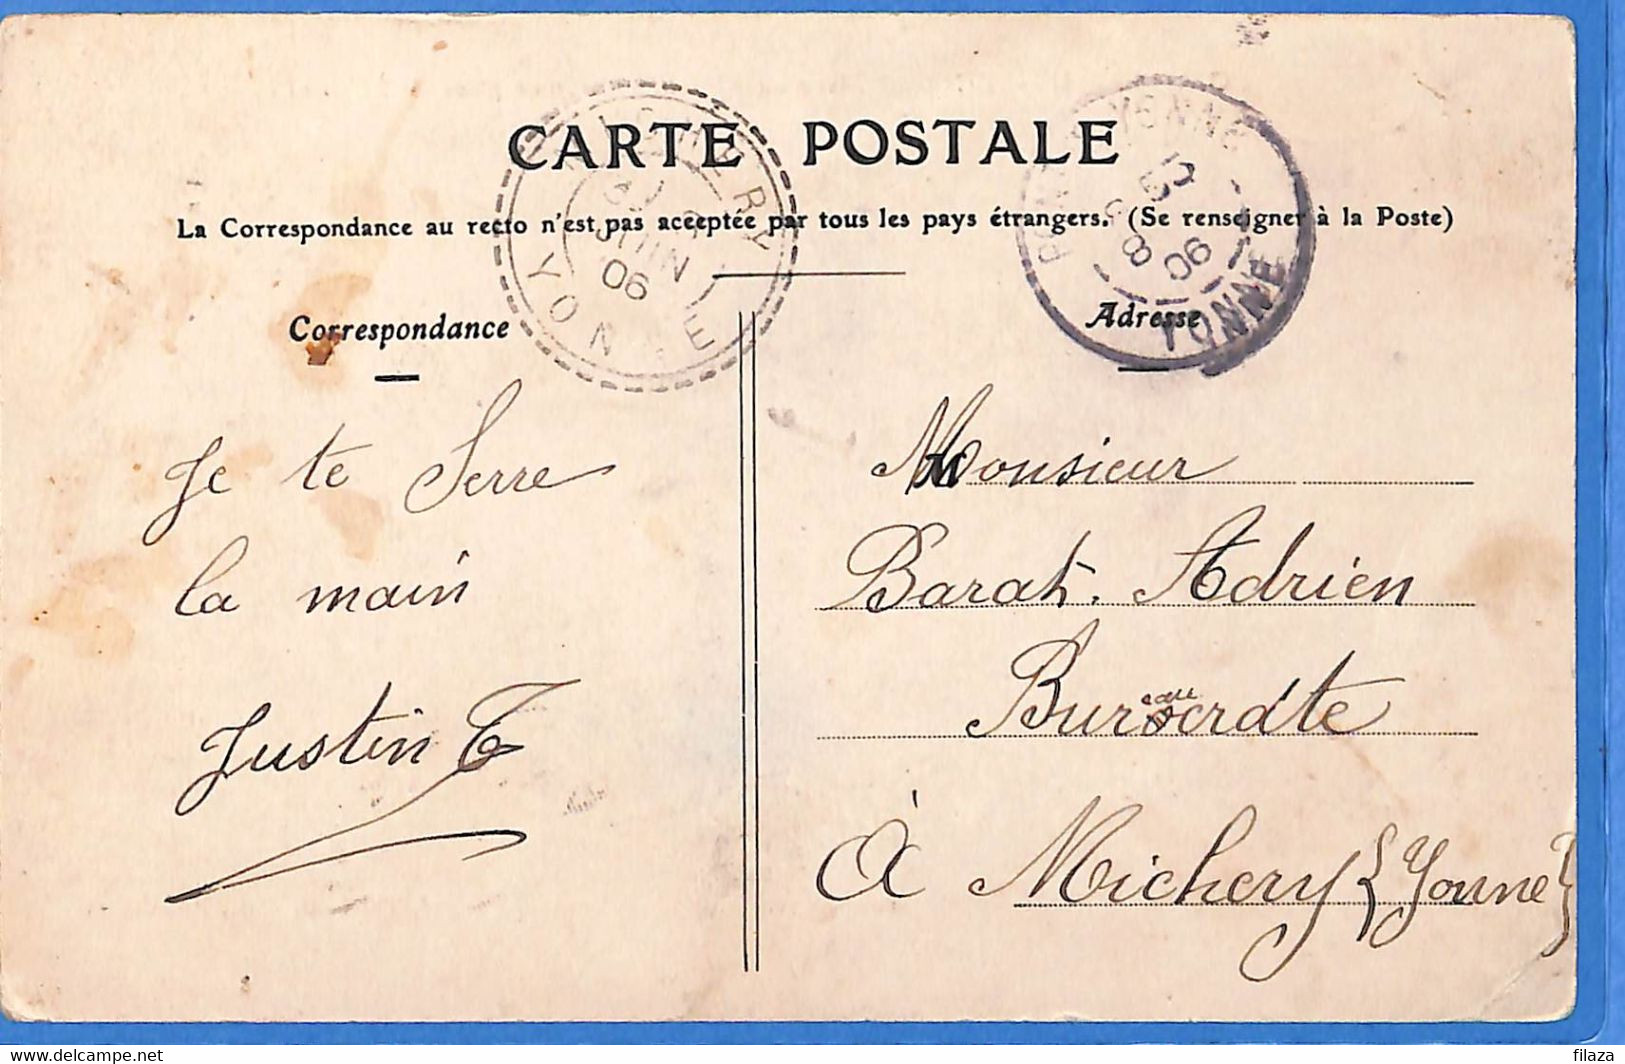 CARTE POSTALE
La Correspondance au recto n'est pas acceptée par tous les pays étrangers. (Se renseigner à la Poste)
MICHERY
JUIN
06
YONNE
YONNE
06
YONNE
Correspondance
Je te Serre
la main
Justin T
Adresse
Monsieur
Barat. Adrien
Bureaucrate
À Michery {Yonne}
delcampe.net
filaza